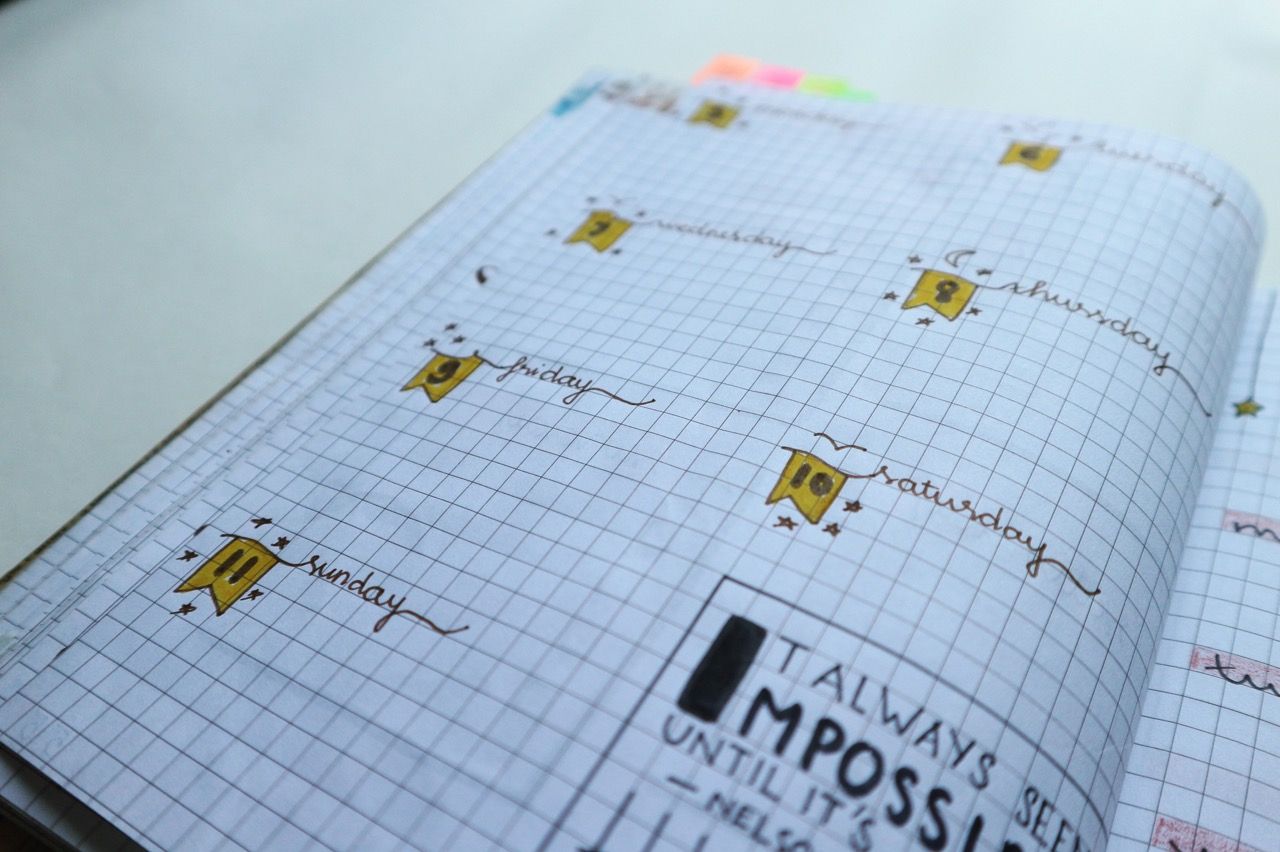 5 monday
6 tuesday
7 wednesday
8 thursday
9 friday
10 saturday
11 sunday
IT ALWAYS SEE
IMPOSSI
UNTIL IT'S
— NELSO
m
tu